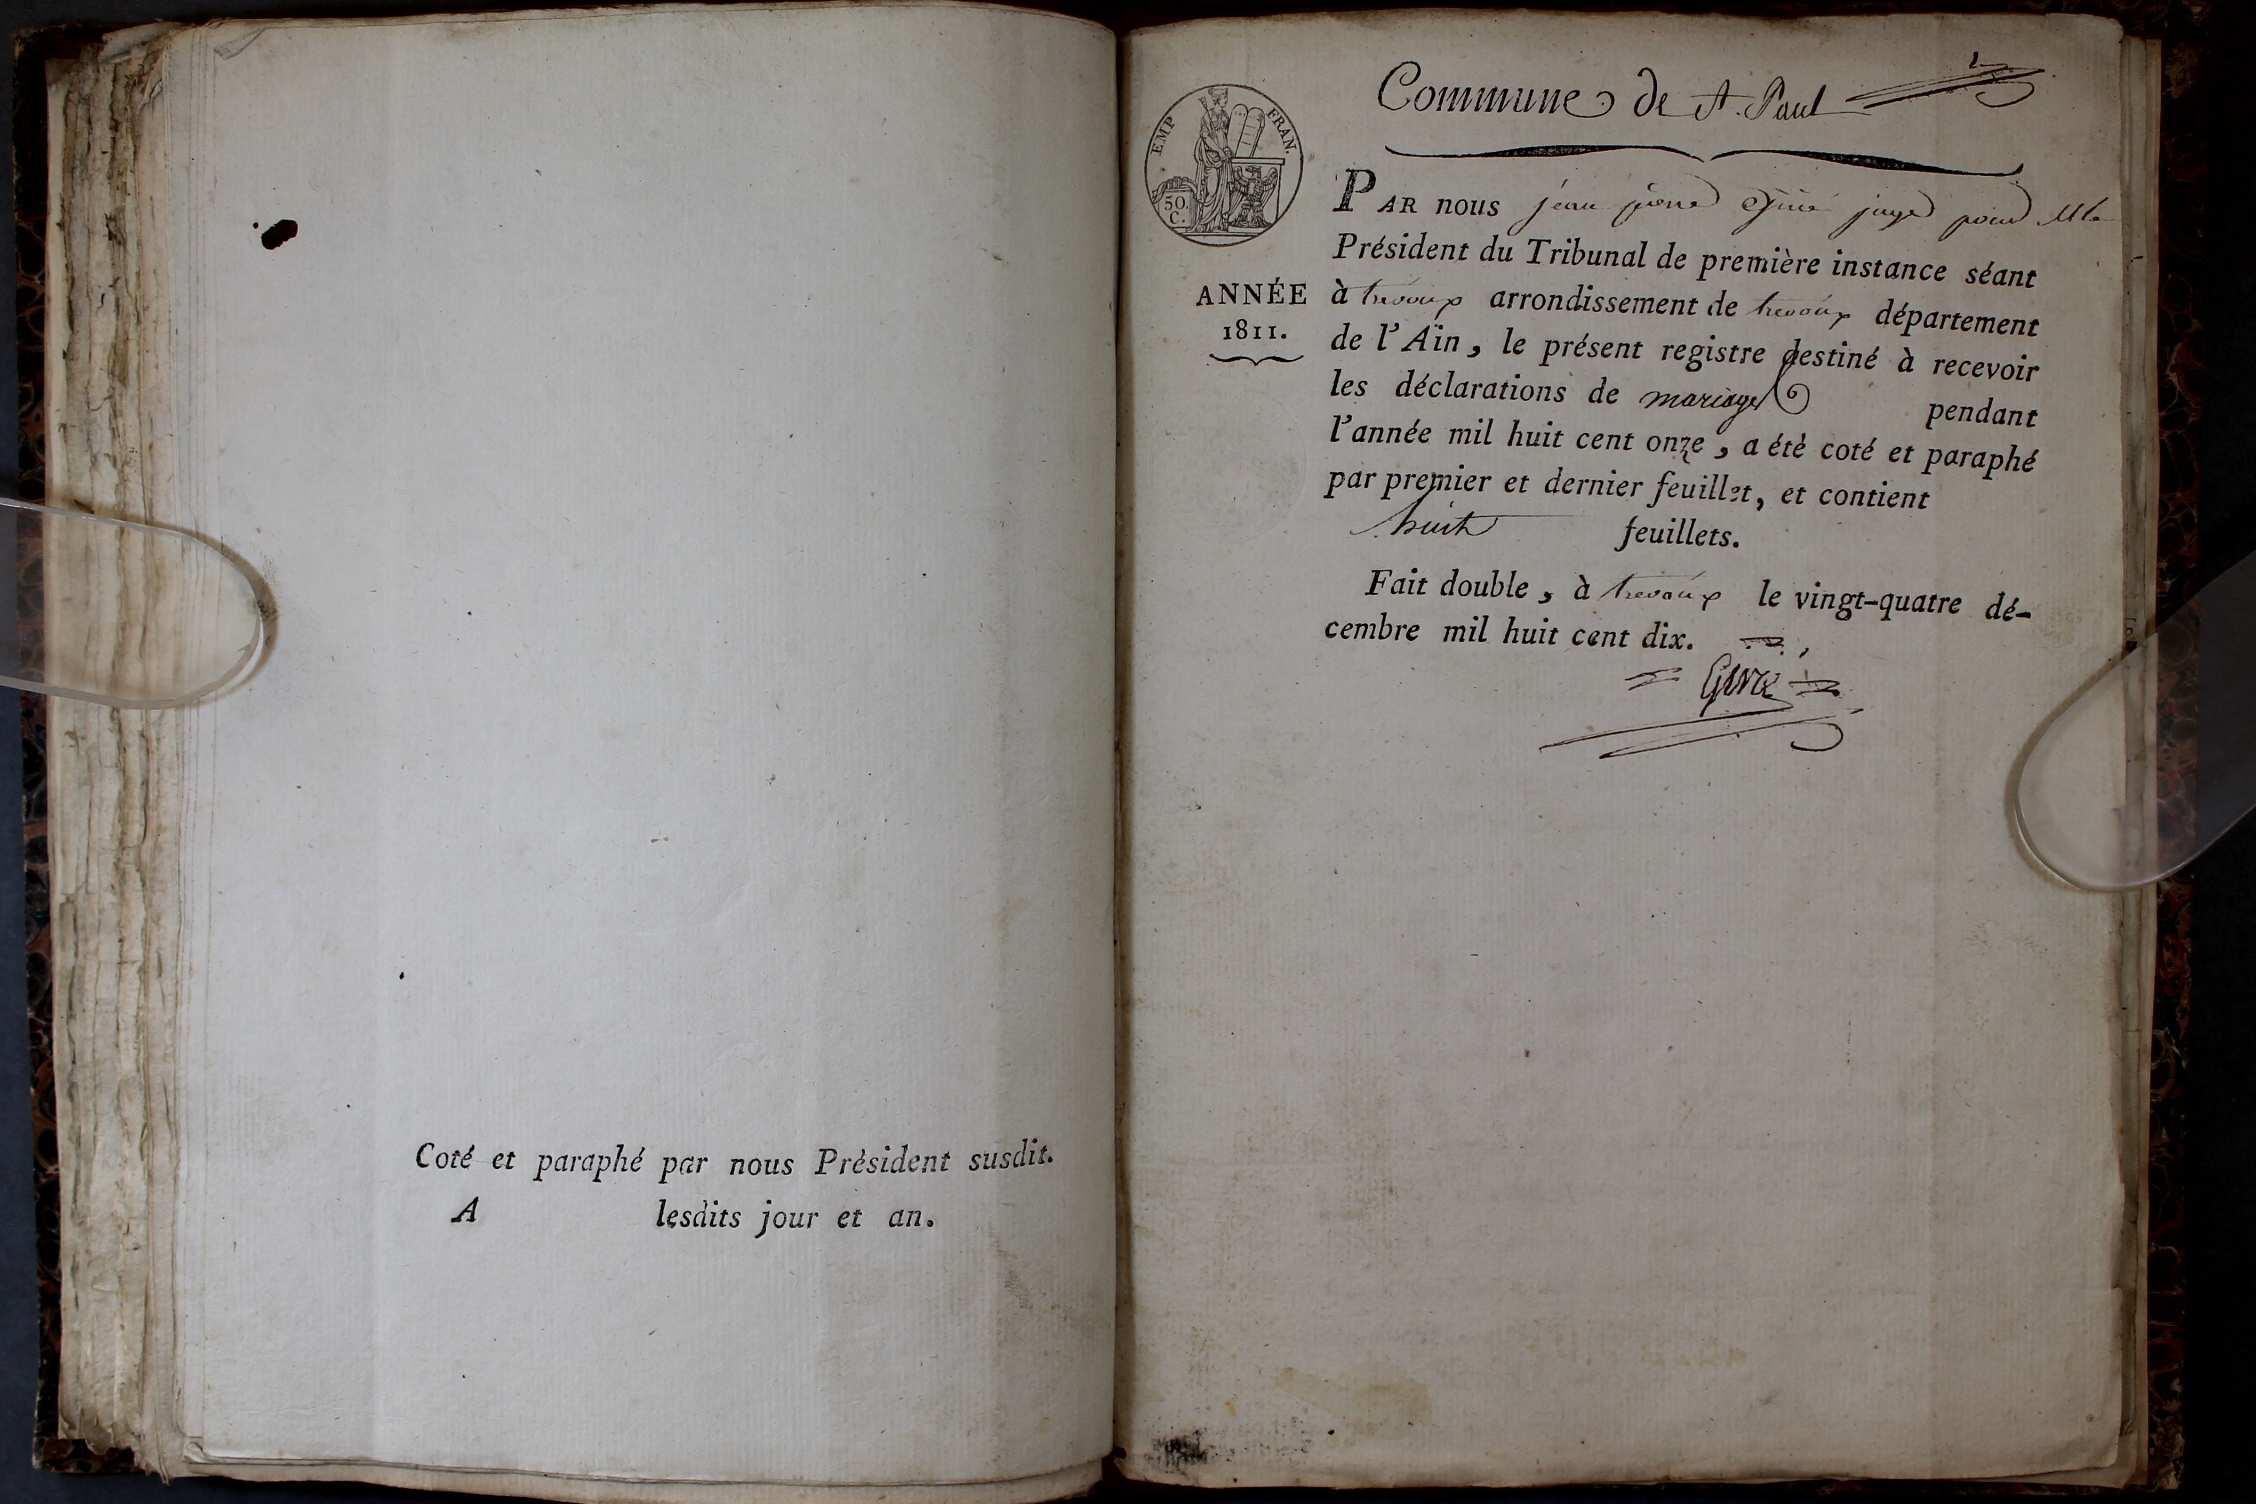 Coté et paraphé par nous Président susdit.
A lesdits jour et an.
Commune de St. Paul
EMP FRAN.
50. C.
ANNÉE
1811.
PAR nous jean pierre juge pour M le
Président du Tribunal de première instance séant
à trevoux arrondissement de trevoux département
de l'Ain, le présent registre destiné à recevoir
les déclarations de mariages pendant
l'année mil huit cent onze, a étè coté et paraphé
par premier et dernier feuillet, et contient
huit feuillets.
Fait double, à trevoux le vingt-quatre dé-
cembre mil huit cent dix.